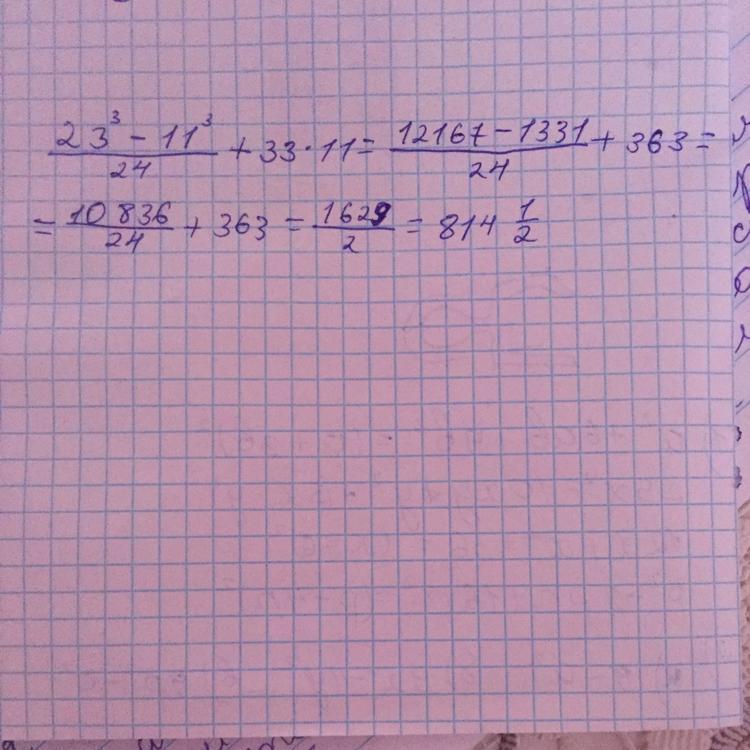 23³ - 11³ / 24 + 33 · 11 = 12167 - 1331 / 24 + 363 =
= 10 836 / 24 + 363 = 1629 / 2 = 814 1/2